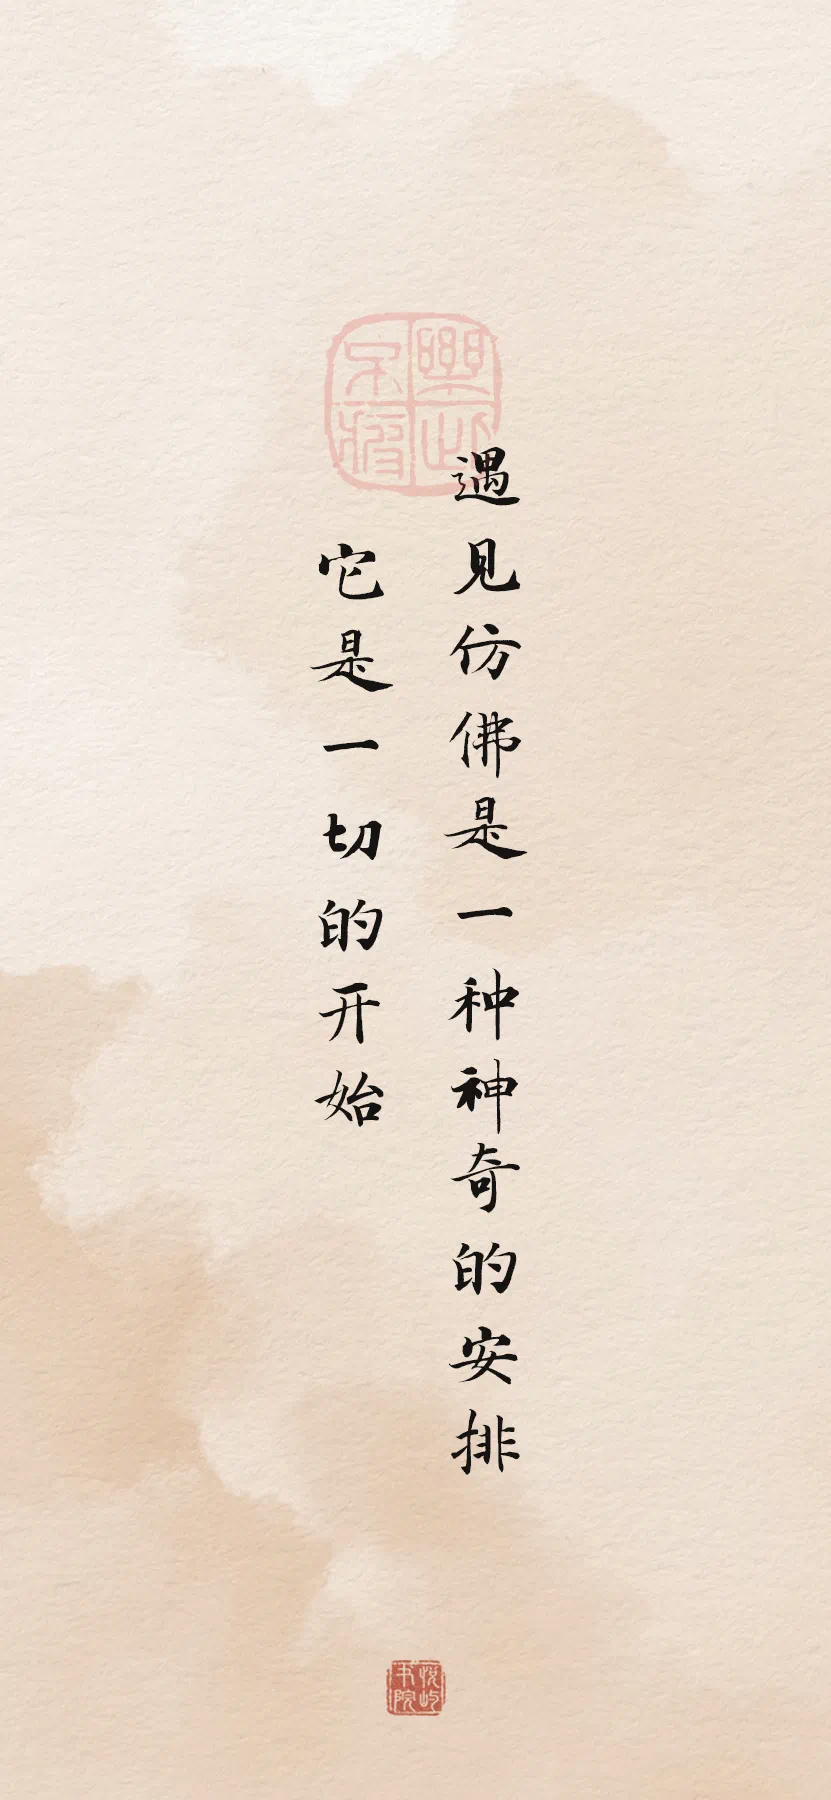 遇见仿佛是一种神奇的安排
它是一切的开始